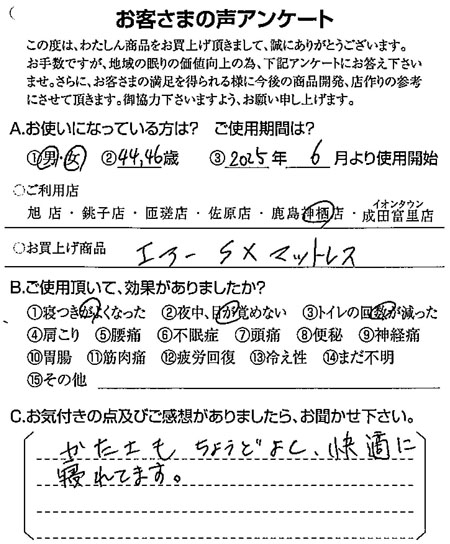 お客さまの声アンケート
この度は、わたしん商品をお買上げ頂きまして、誠にありがとうございます。
お手数ですが、地域の眠りの価値向上の為、下記アンケートにお答え下さい
ませ。さらに、お客さまの満足を得られる様に今後の商品開発、店作りの参考
にさせて頂きます。御協力下さいますよう、お願い申し上げます。
A.お使いになっている方は? ご使用期間は?
①男・女 ②44,46歳 ③2025年 6月より使用開始
○ご利用店
旭店・銚子店・匝瑳店・佐原店・鹿島神栖店・成田富里店
イオンタウン
○お買上げ商品 エアーSXマットレス
B.ご使用頂いて、効果がありましたか?
①寝つきがよくなった ②夜中、目が覚めない ③トイレの回数が減った
④肩こり ⑤腰痛 ⑥不眠症 ⑦頭痛 ⑧便秘 ⑨神経痛
⑩胃腸 ⑪筋肉痛 ⑫疲労回復 ⑬冷え性 ⑭まだ不明
⑮その他
C.お気付きの点及びご感想がありましたら、お聞かせ下さい。
かたさも ちょうどよく、快適に
寝れてます。